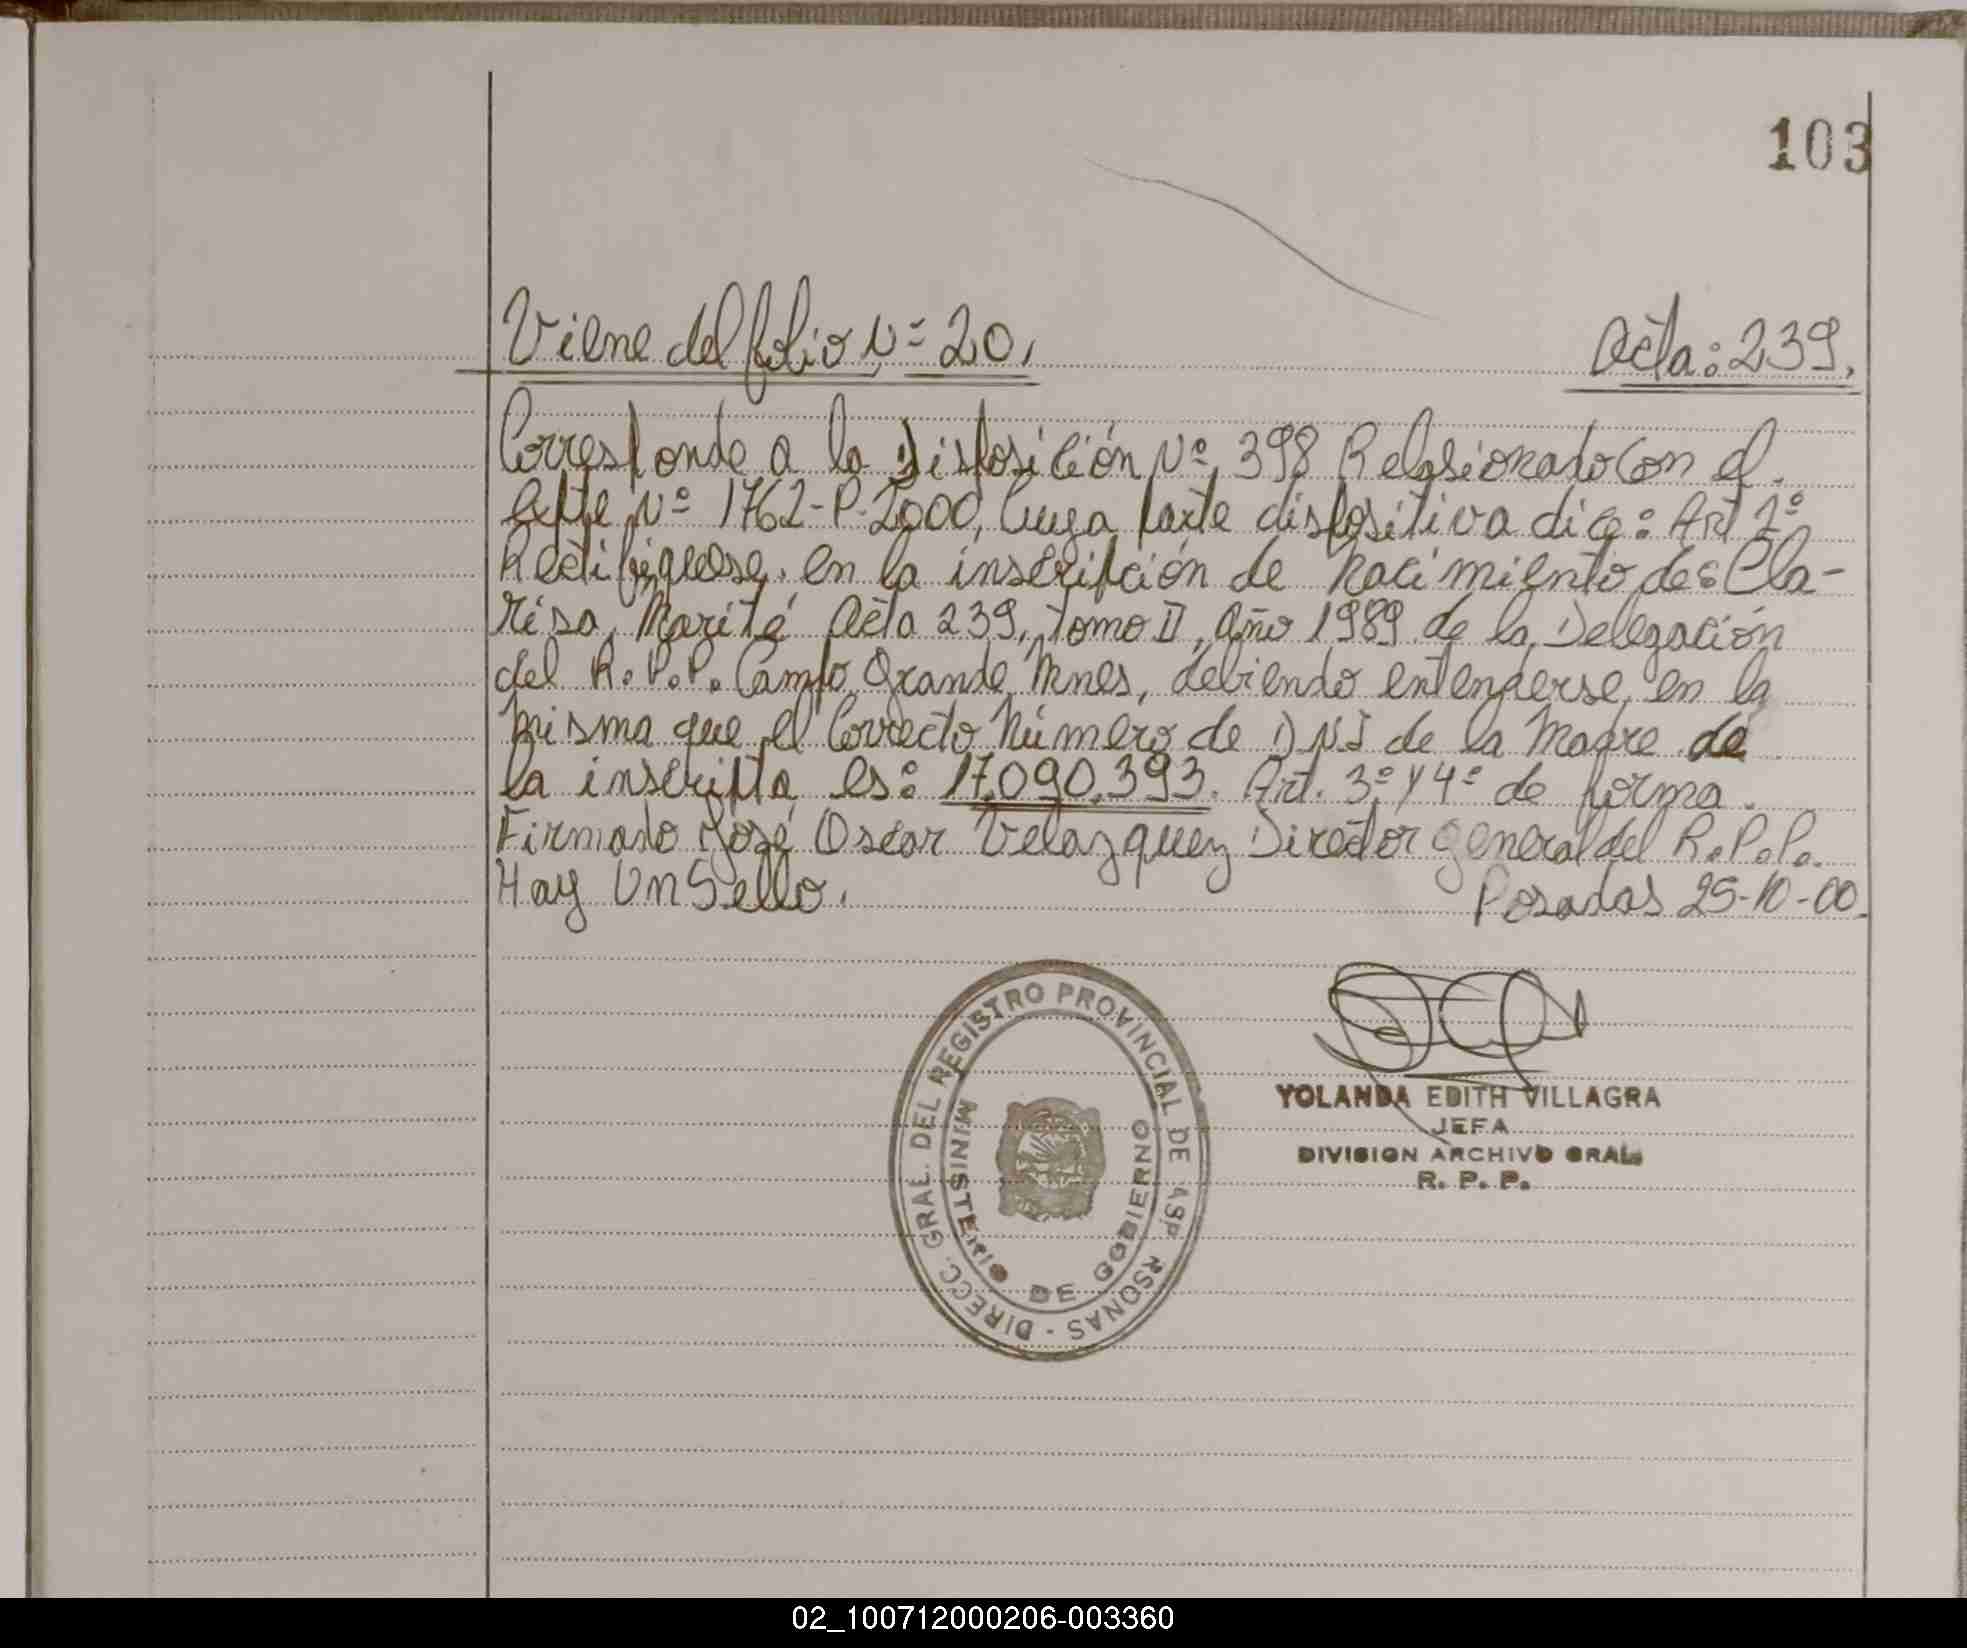 103
Viene del folio Nº 20.
Acta: 239.
Corresponde a la Disposición Nº 398 Relasionado Con el
expte Nº 1762-P-2000, Cuya parte dispositiva dice: Art 1º
Rectifiquese en la inscripción de nacimiento de: Cla-
risa Marité Acta 239, tomo II, año 1989 de la Delegación
del R.P.P. Campo Grande Mnes, debiendo entenderse en la
misma que el Correcto Número de DNI de la Madre de
la inscripta es: 17.090.393. Art. 3º y 4º de forma.
Firmado José Oscar Velazquez Director general del R.P.P.
Hay Un Sello.
Posadas 25-10-00.
DIRECC. GRAL. DEL REGISTRO PROVINCIAL DE RSONAS -
MINISTERIO DE GOBIERNO
YOLANDA EDITH VILLAGRA
JEFA
DIVISION ARCHIVO GRAL.
R. P. P.
02_100712000206-003360